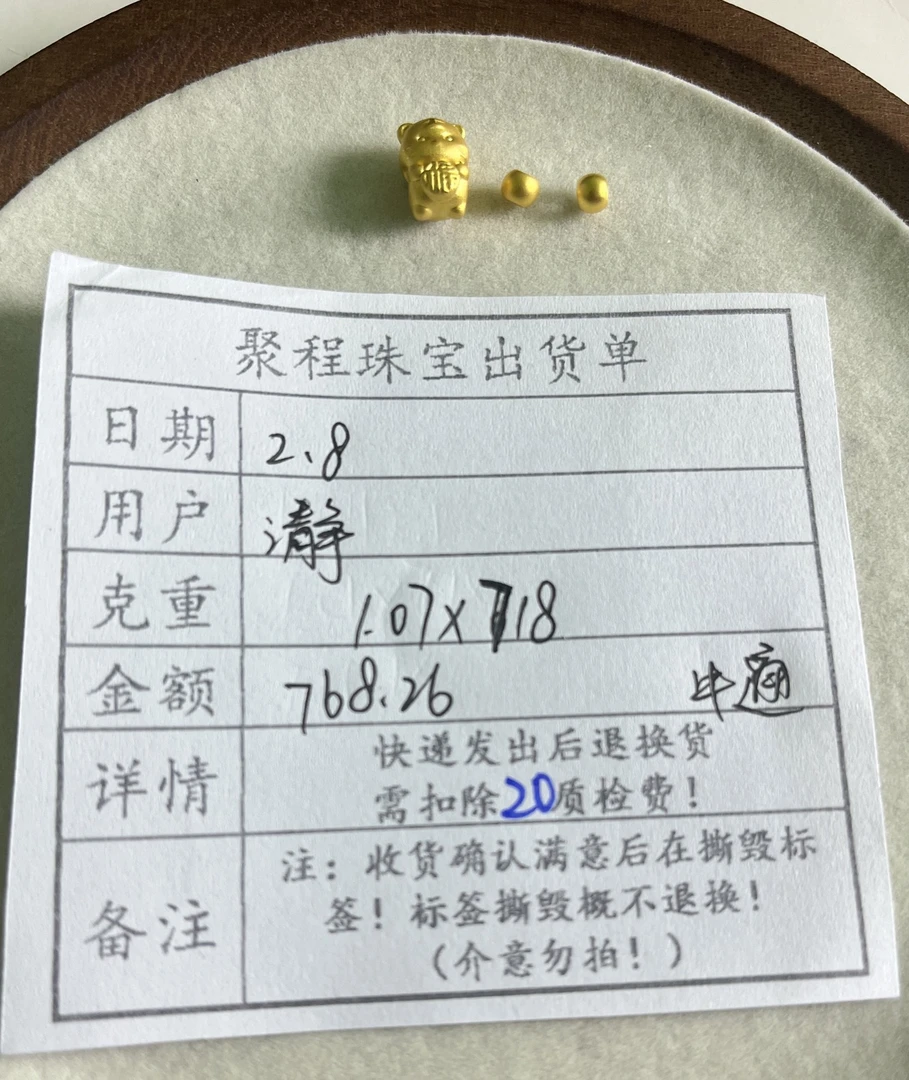 聚程珠宝出货单
日期 2、8
用户 清静
克重 1.07x718
金额 768.26 中通
详情 快递发出后退换货
需扣除20质检费！
备注 注：收货确认满意后在撕毁标
签！标签撕毁概不退换！
（介意勿拍！）